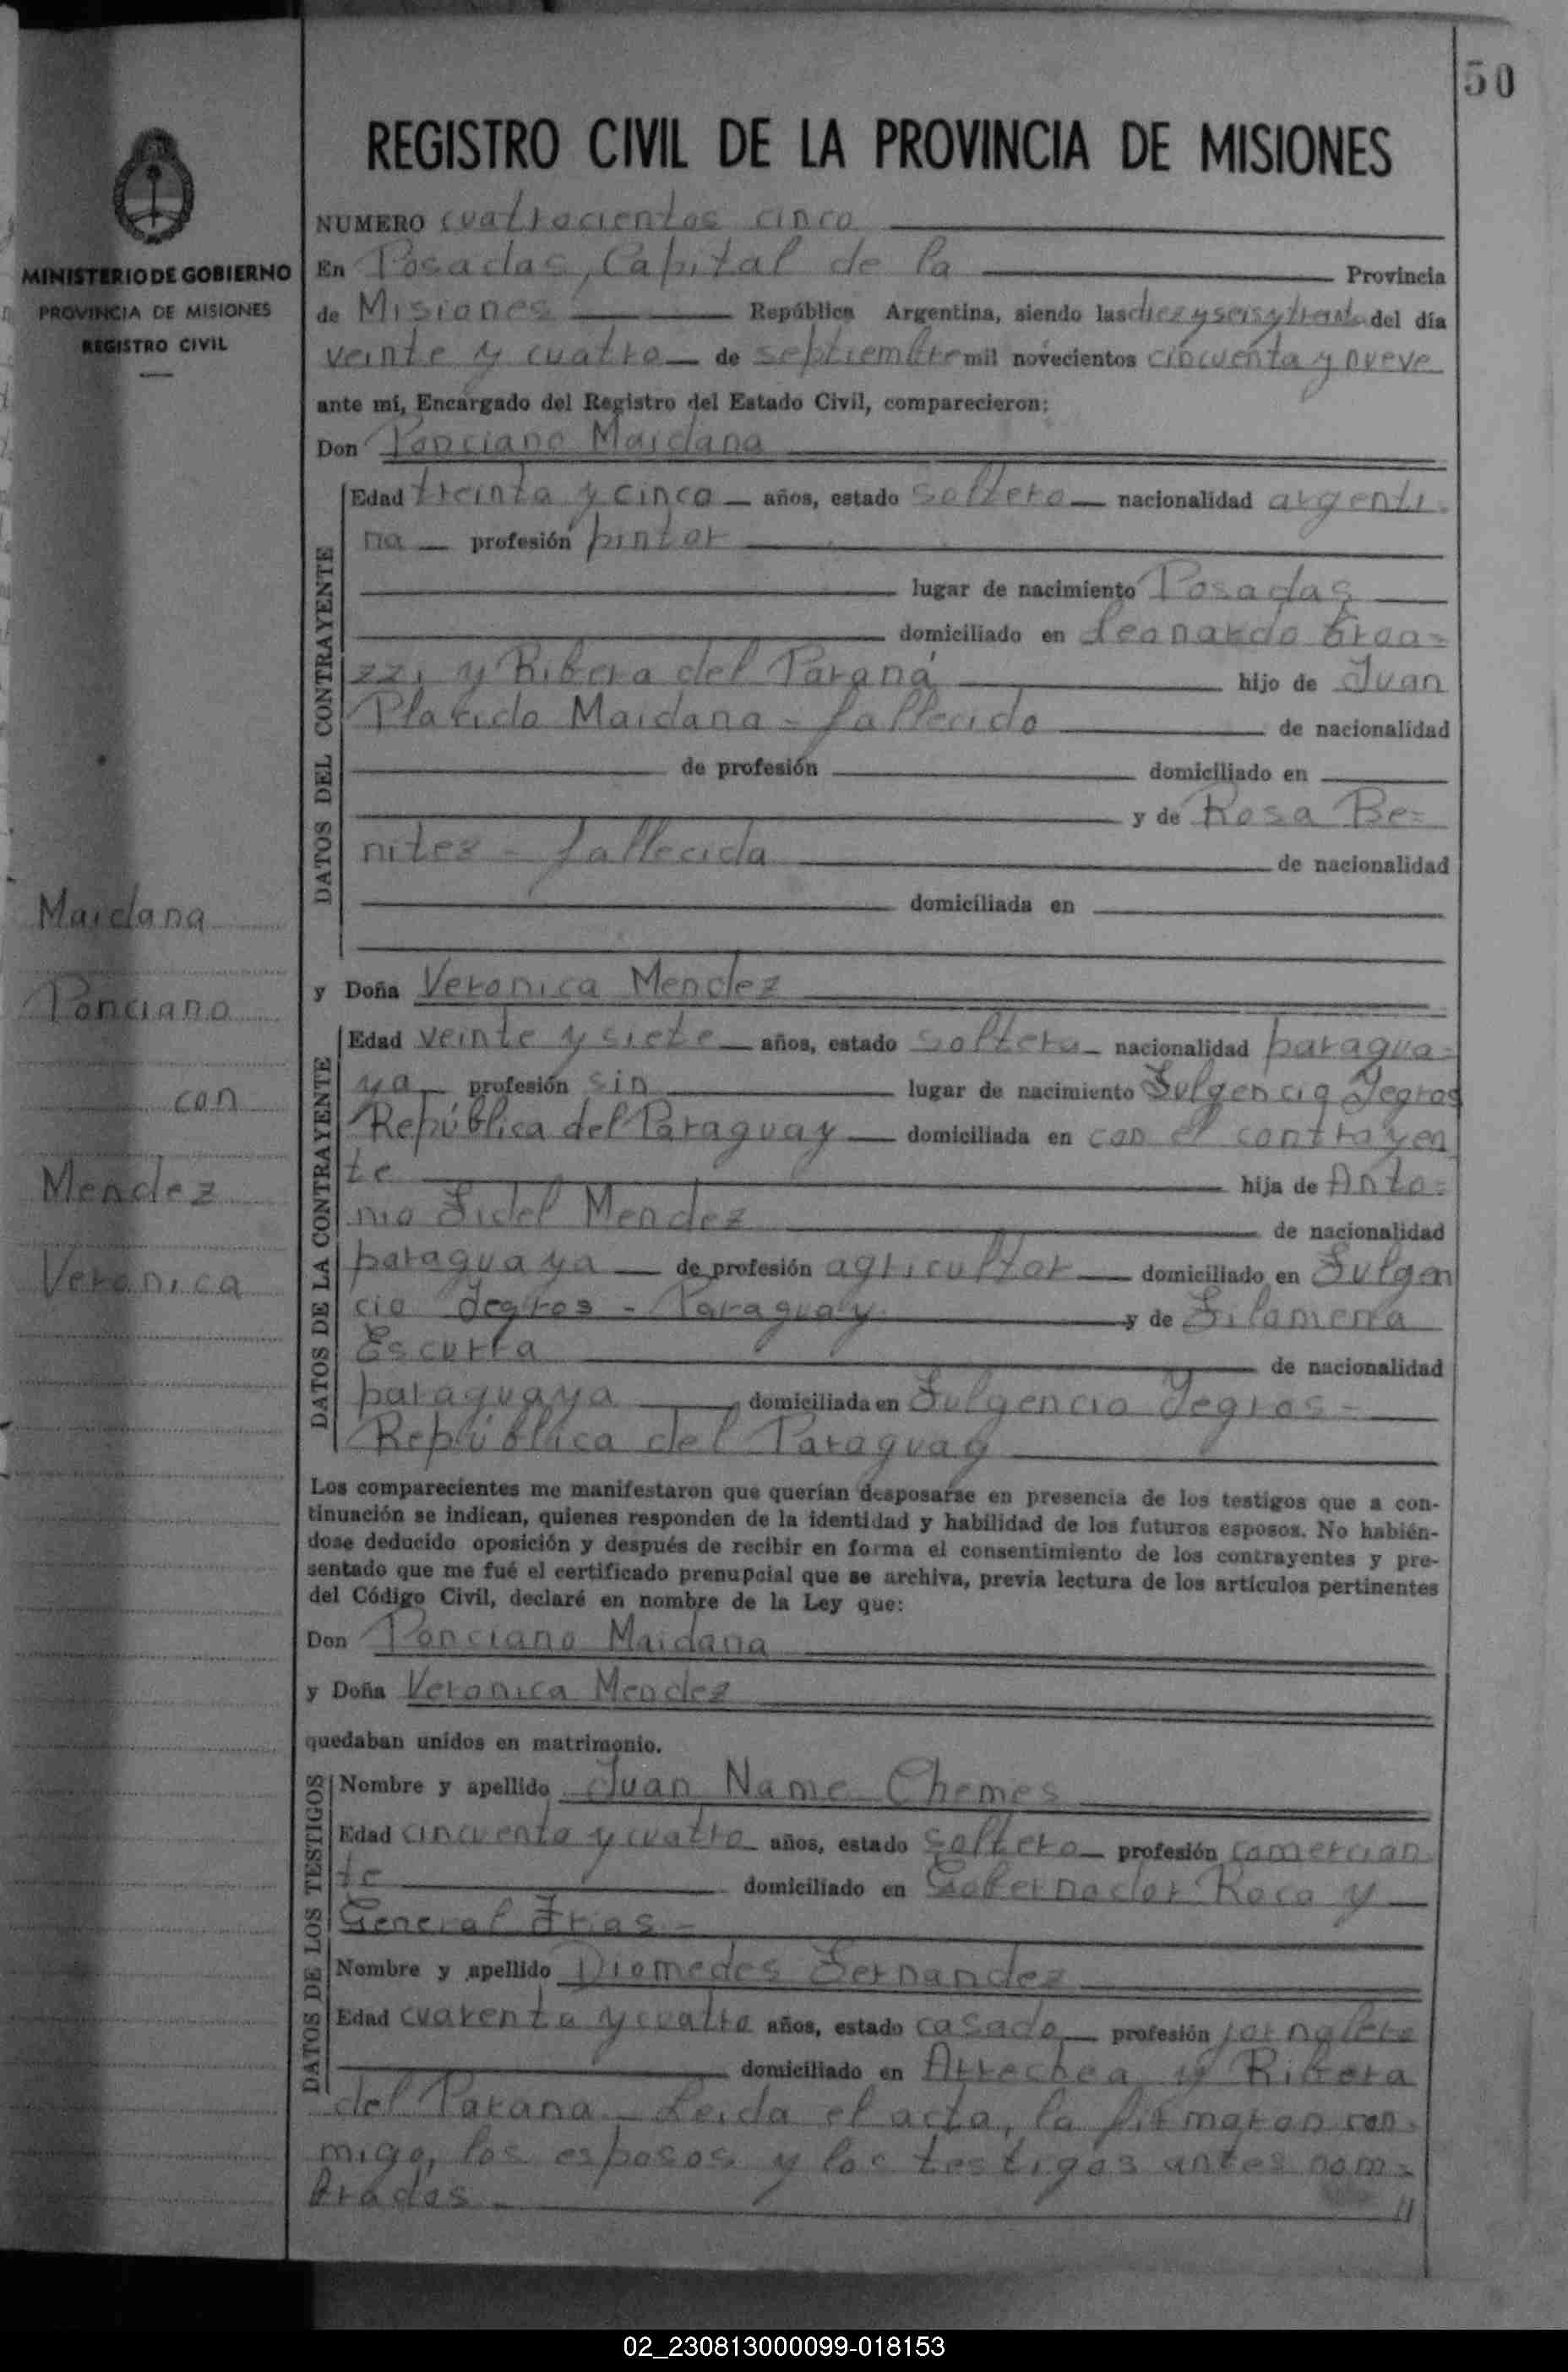 50
REGISTRO CIVIL DE LA PROVINCIA DE MISIONES
MINISTERIO DE GOBIERNO
PROVINCIA DE MISIONES
REGISTRO CIVIL
Maidana
Ponciano
con
Mendez
Veronica
NUMERO cuatrocientos cinco
En Posadas, Capital de la Provincia
de Misiones República Argentina, siendo las diez y seis y treinta del día
veinte y cuatro de septiembre mil novecientos cincuenta y nueve
ante mí, Encargado del Registro del Estado Civil, comparecieron:
Don Ponciano Maidana
DATOS DEL CONTRAYENTE
Edad treinta y cinco años, estado soltero nacionalidad argenti-
na profesión pintor
lugar de nacimiento Posadas
domiciliado en Leonardo
zzi y Ribera del Paraná hijo de Juan
Placido Maidana - fallecido de nacionalidad
de profesión domiciliado en
y de Rosa Be=
nitez - fallecida de nacionalidad
domiciliada en
y Doña Veronica Mendez
DATOS DE LA CONTRAYENTE
Edad veinte y siete años, estado soltera nacionalidad paragua=
ya profesión sin lugar de nacimiento Fulgencio Yegros
República del Paraguay domiciliada en con el contrayen
te hija de Anto=
nio Fidel Mendez de nacionalidad
paraguaya de profesión agricultor domiciliado en Fulgen
cio Yegros - Paraguay y de Filomena
Escurra de nacionalidad
paraguaya domiciliada en Fulgencio Yegros =
República del Paraguay
Los comparecientes me manifestaron que querían desposarse en presencia de los testigos que a con-
tinuación se indican, quienes responden de la identidad y habilidad de los futuros esposos. No habién-
dose deducido oposición y después de recibir en forma el consentimiento de los contrayentes y pre-
sentado que me fué el certificado prenupcial que se archiva, previa lectura de los artículos pertinentes
del Código Civil, declaré en nombre de la Ley que:
Don Ponciano Maidana
y Doña Veronica Mendez
quedaban unidos en matrimonio.
DATOS DE LOS TESTIGOS
Nombre y apellido Juan Name Chemes
Edad cincuenta y cuatro años, estado soltero profesión comercian
te domiciliado en Gobernador Roca y
General Frias -
Nombre y apellido Diomedes Fernandez
Edad cuarenta y cuatro años, estado casado profesión jornalero
domiciliado en Arrechea y Ribera
del Parana - Leida el acta, la firmaron con-
migo, los esposos y los testigos antes nom=
brados - //
02_230813000099-018153